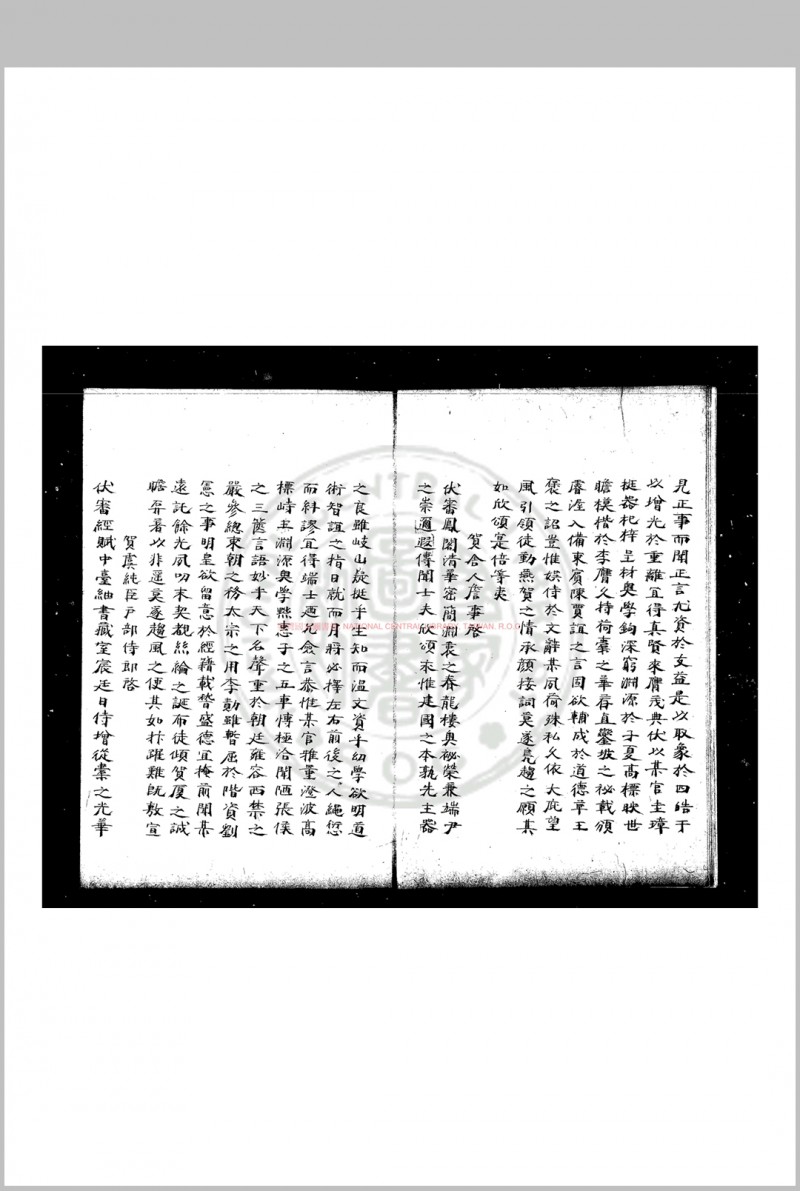 見正事而聞正言尤資於友益是以取象於四皓于
以增光於重離宜得真賢來膺茂典伏以某官圭璋
挺器杞梓呈材奧學鈎深窮淵源於子夏高標映世
瞻模楷於李膺久持荷橐之華荐直鑾坡之祕載頒
睿渥入備東賓陳賈誼之言固欲輔成於道德草王
褒之詔豈惟娛侍於文辭某夙荷殊私久依大庇望
風引領徒動燕賀之情承顔接詞莫遂鳧趨之願其
如欣頌寔倍等夷
賀舍人詹事啓
伏審鳳閣清華密簡淵衷之眷龍樓奧祕榮兼端尹
之崇邇遐傳聞士夫欣頌來惟建國之本孰先主器
之良雖岐嶷挺乎生知而温文資乎幼學欲明道
術智誼之指日就而月將必擇左右前後之人繩愆
而糾謬宜得端士迺允僉言恭惟某官雅量澄波高
標峙玉淵源奧學熟惠子之五車愽極洽聞陋張侯
之三篋言語妙乎天下名聲重於朝廷雍容西禁之
嚴參總東朝之務太宗之用李勣雖暫屈於階資劉
憲之事明皇欲留意於經籍載蟄盛德宜掩前聞某
遠託餘光夙叨末契覩絲綸之誕布徒傾賀厦之誠
瞻弁著以非遥莫遂趨風之便其如抃躍難旣敷宣
賀虞純臣戸部侍郎啓
伏審經賦中臺紬書藏室宸廷日侍增從橐之光華
NATIONAL CENTRAL LIBRARY, TAIWAN, R.O.C